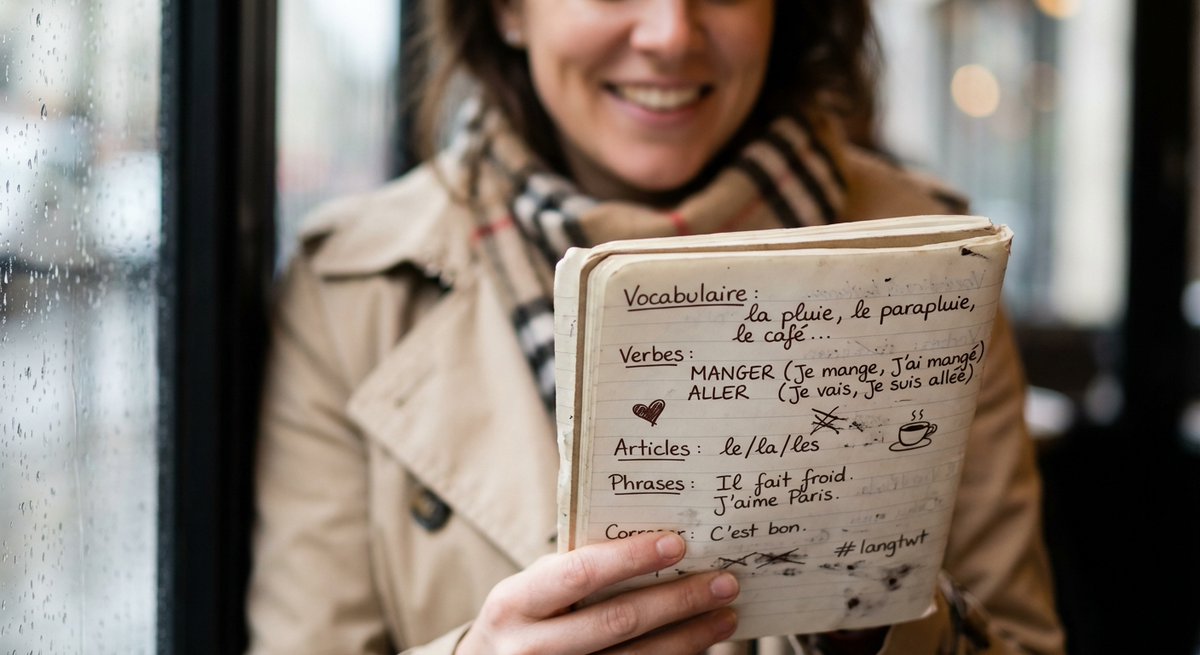 Vocabulaire :
la pluie, le parapluie,
le café...
Verbes :
MANGER (Je mange, J'ai mangé)
ALLER (Je vais, Je suis allée)
Articles : le/la/les
Phrases : Il fait froid.
J'aime Paris.
C'est bon.
#langtwt